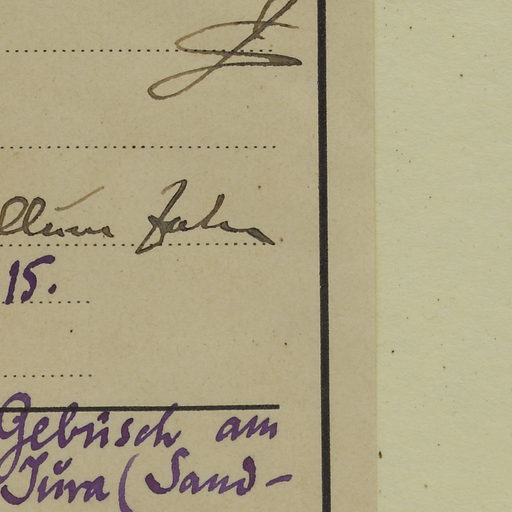 llum Zahn
15.
Gebüsch am
Jura (Sand-